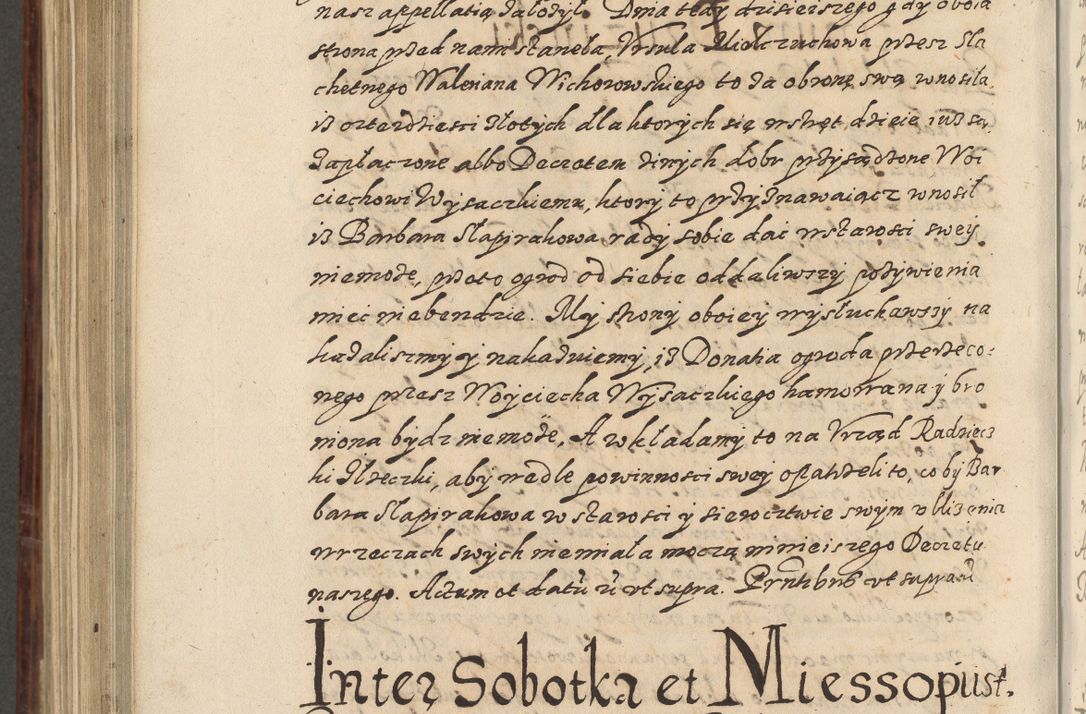 nasz appellatią załozył. Dnia tedy dzisieiszego gdy oboia
strona przed nami stanęła, Vrsula Mialczuchowa przesz sla
chetnego Waleriana Wichorowskiego to za obronę swą wnosiła
iz czterdziesci złotych dla ktorych się wstręt dzieie iusz są
zapłaczone albo Decretem z inych dobr przysądzone Woi
ciechowi Wysaczkiemu, ktory to przyznawaiącz wnosił
iz Barbara Slapirakowa rady sobie dac w starosci swey
niemoze, przeto ogrod od siebie oddaliwszy pozywienia
miec niebendzie. My strony oboiey wysłuchawszy na
kazalismy y nakazuiemy, iz Donatia ogroda przerzeco-
nego przesz Woyciecha Wysaczkiego hamowana y bro
niona bydz niemoze, A wkładamy to na Vrząd Radziecz
ki Ilzeczki, aby wedle powinnosci swey opatrzeli to, co by Bar
bara Slapirakowa w starosci y sieroctwie swym vblizenia
w rzeczach swych niemiała moczą ninieiszego Decretu
naszego. Actum et datũ ũ vt supra. Prntibus vt supra
Inter Sobotka et Miessopust.